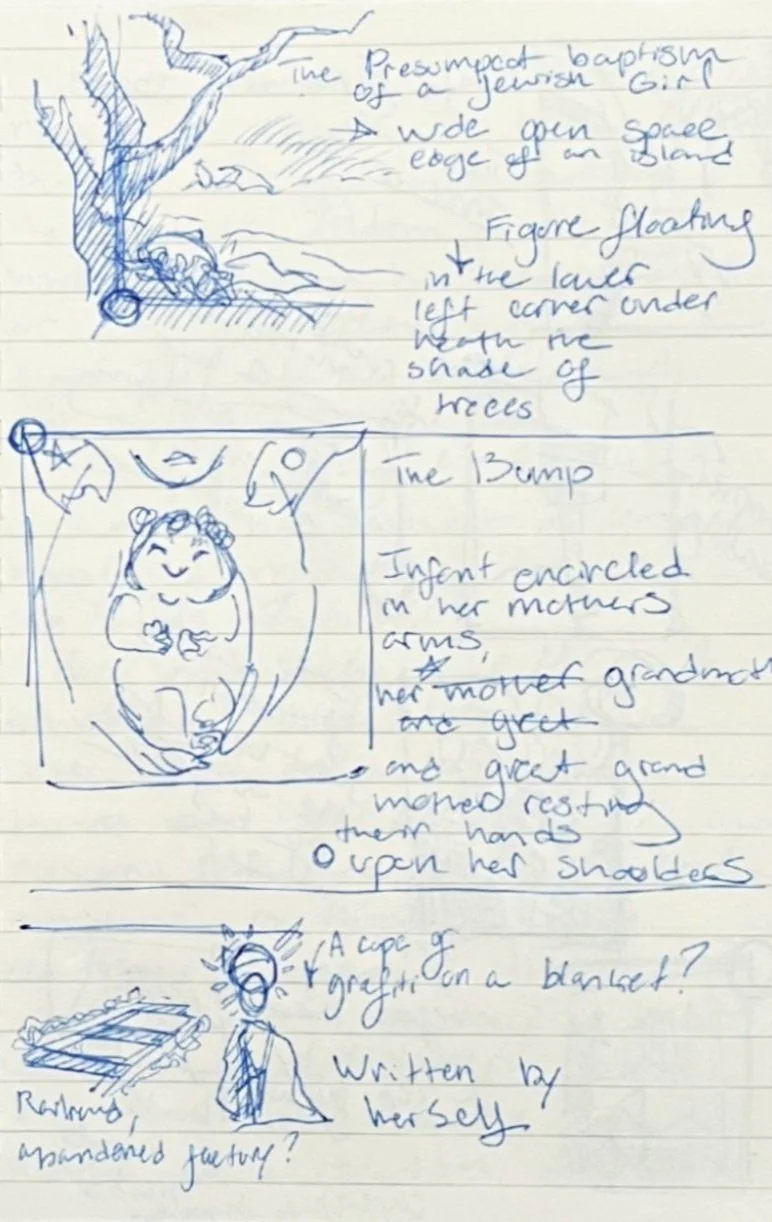 The Presumpcot baptism
of a Jewish Girl
→ wide open space
edge of an island
Figure floating
in the lower
left corner under
neath the
shade of
treees
The Bump
Infant encircled
in her mothers
arms,
her mother grandmoth
and gret
and great grand
mother resting
their hands
upon her shoulders
A cape of
grafiti on a blanket?
Written by
herself
Railroad,
abandoned factory?